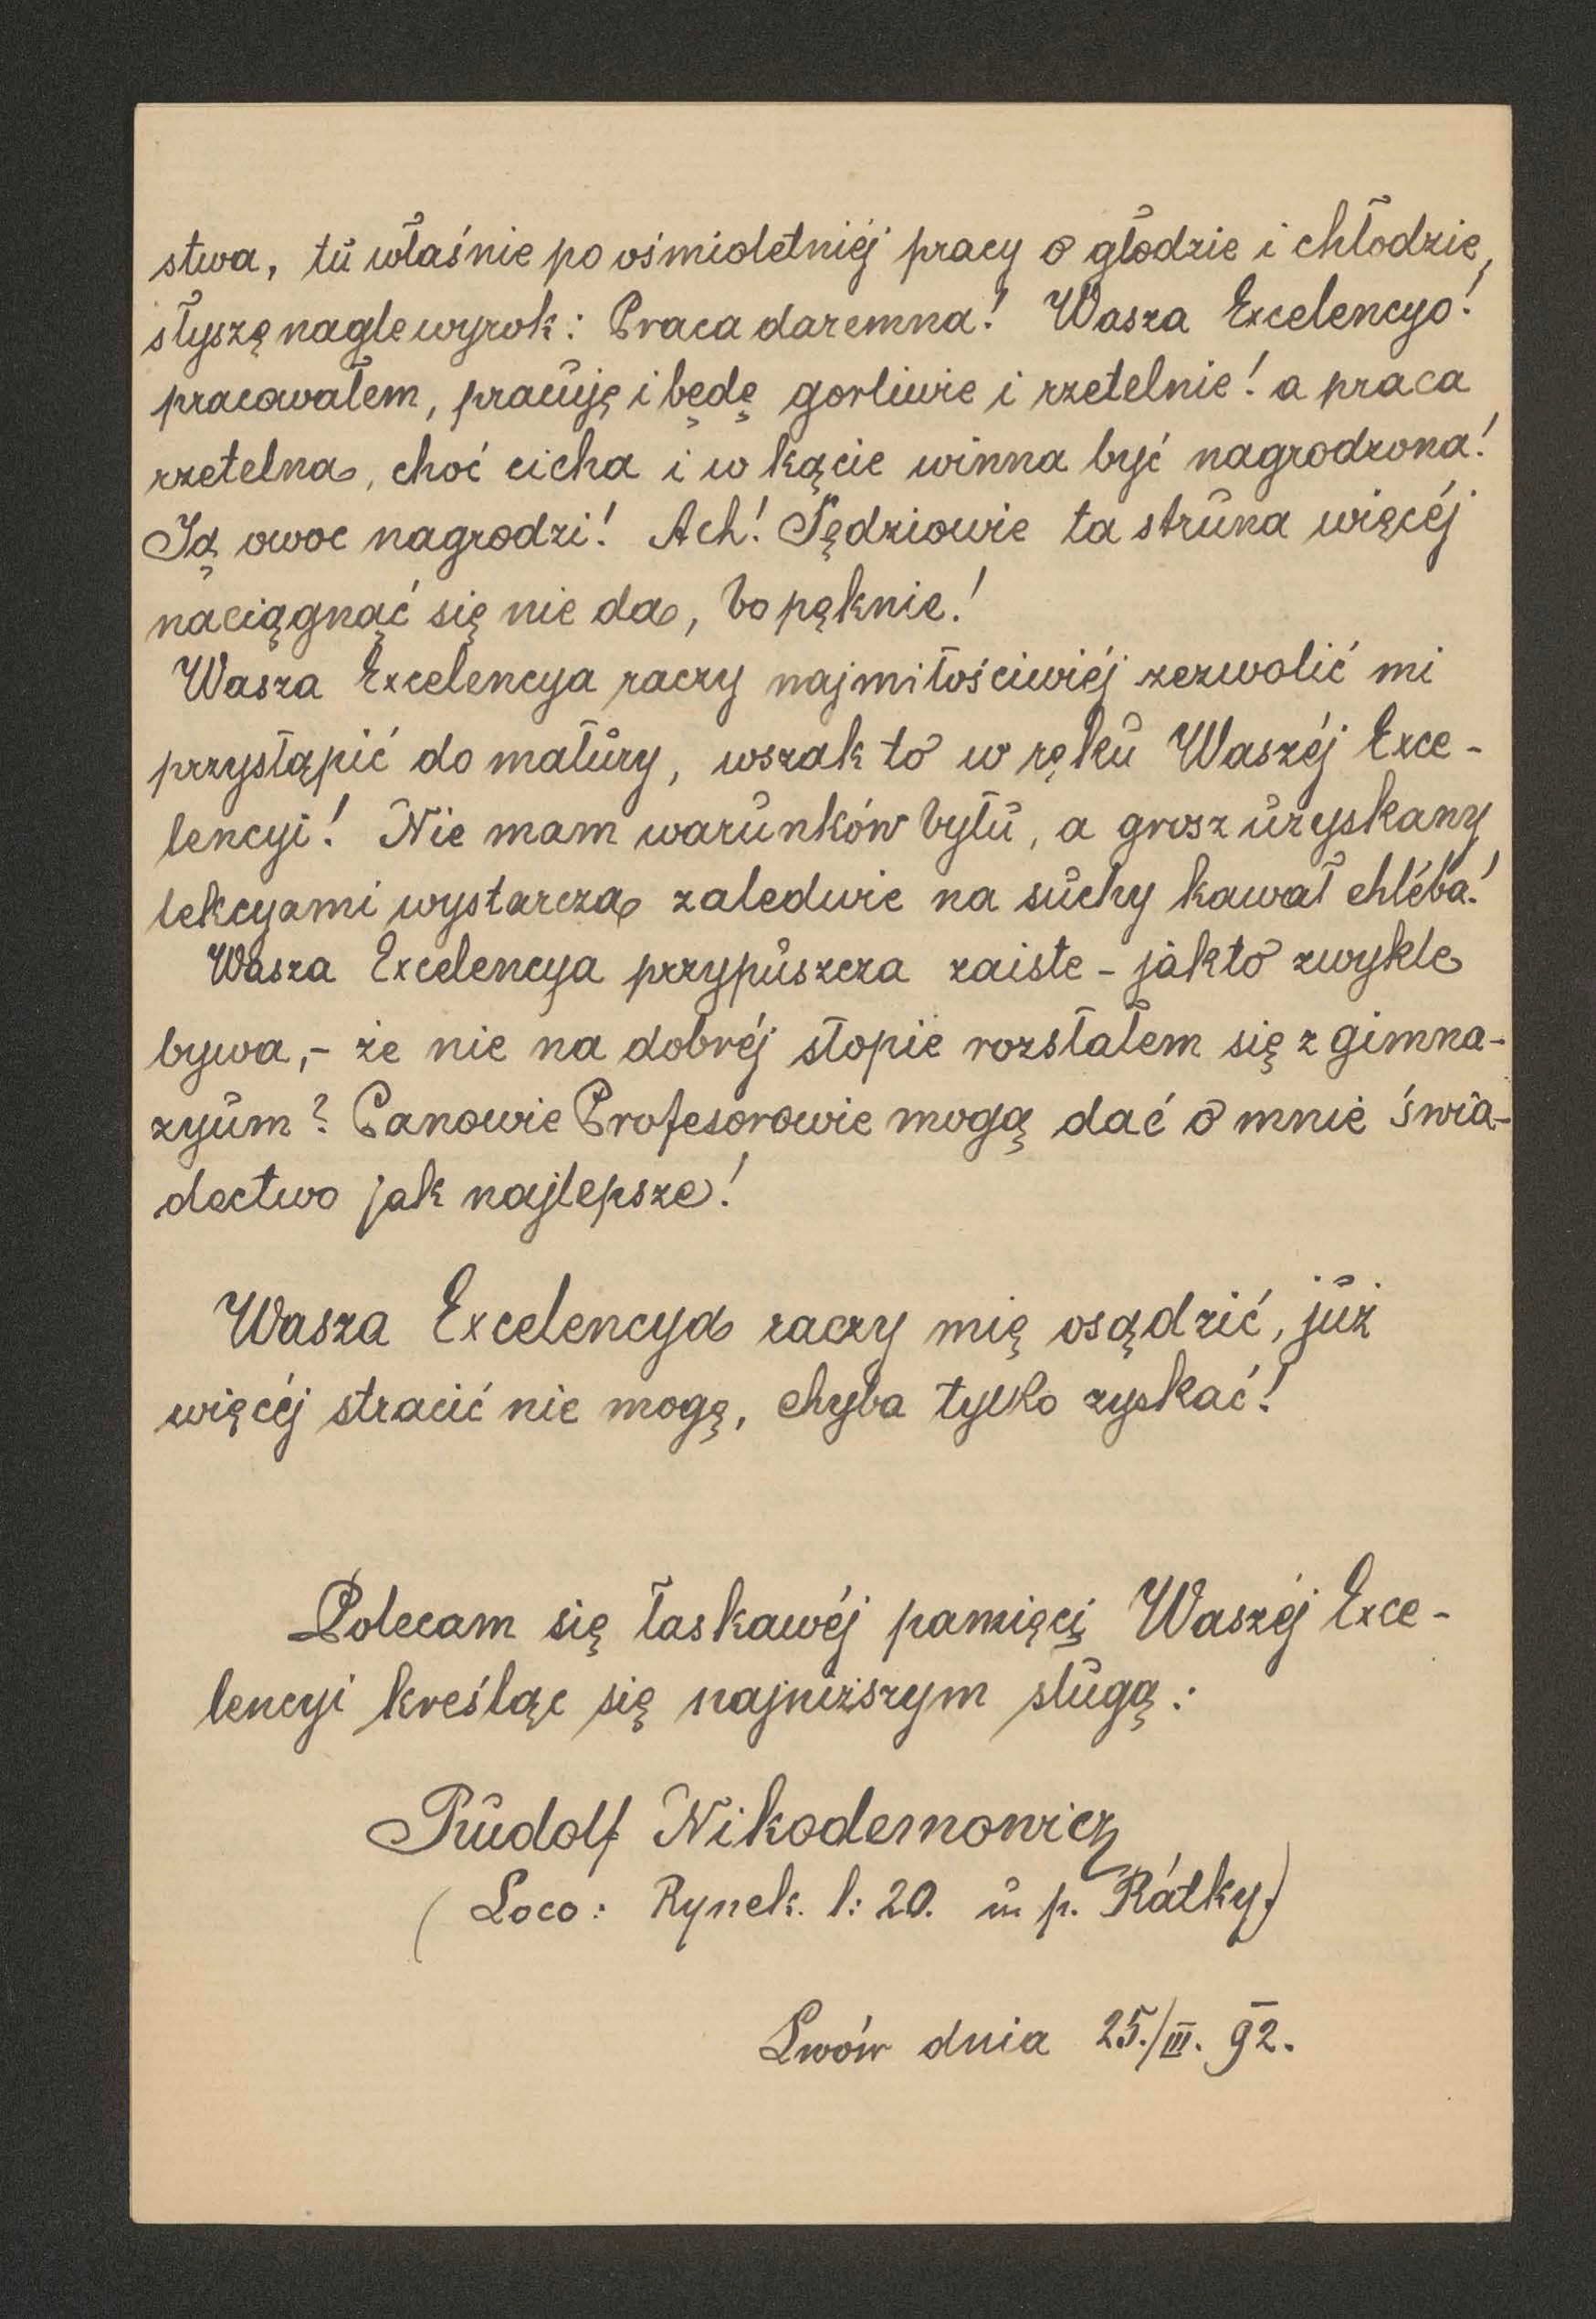 stwa, tu właśnie po ośmioletniéj pracy o głodzie i chłodzie,
słyszę nagle wyrok: Praca daremna! Wasza Excelencyo!
pracowałem, pracuję i będę gorliwie i rzetelnie! a praca
rzetelna, choć cicha i w kącie winna być nagrodzona!
Ją owoc nagrodzi! Ach! Sędziowie ta struna więcéj
naciągnąć się nie da, bo pęknie!
Wasza Excelencya raczy najmiłościwiéj zezwolić mi
przystąpić do matury, wszak to w ręku Waszéj Exce-
lencyi! Nie mam warunków bytu, a grosz uzyskany
lekcyami wystarcza zaledwie na suchy kawał chléba!
Wasza Excelencya przypuszcza zaiste - jak to zwykle
bywa, - że nie na dobréj stopie rozstałem się z gimna-
zyum? Panowie Profesorowie mogą dać o mnie świa-
dectwo jak najlepsze!
Wasza Excelencya raczy mię osądzić, już
więcéj stracić nie mogę, chyba tylko zyskać!
Polecam się łaskawéj pamięci Waszéj Exce-
lencyi kreśląc się najniższym sługą:
Rudolf Nikodemowicz
(Loco: Rynek. l: 20. u p. Rátky.)
Lwów dnia 25./III. 92.